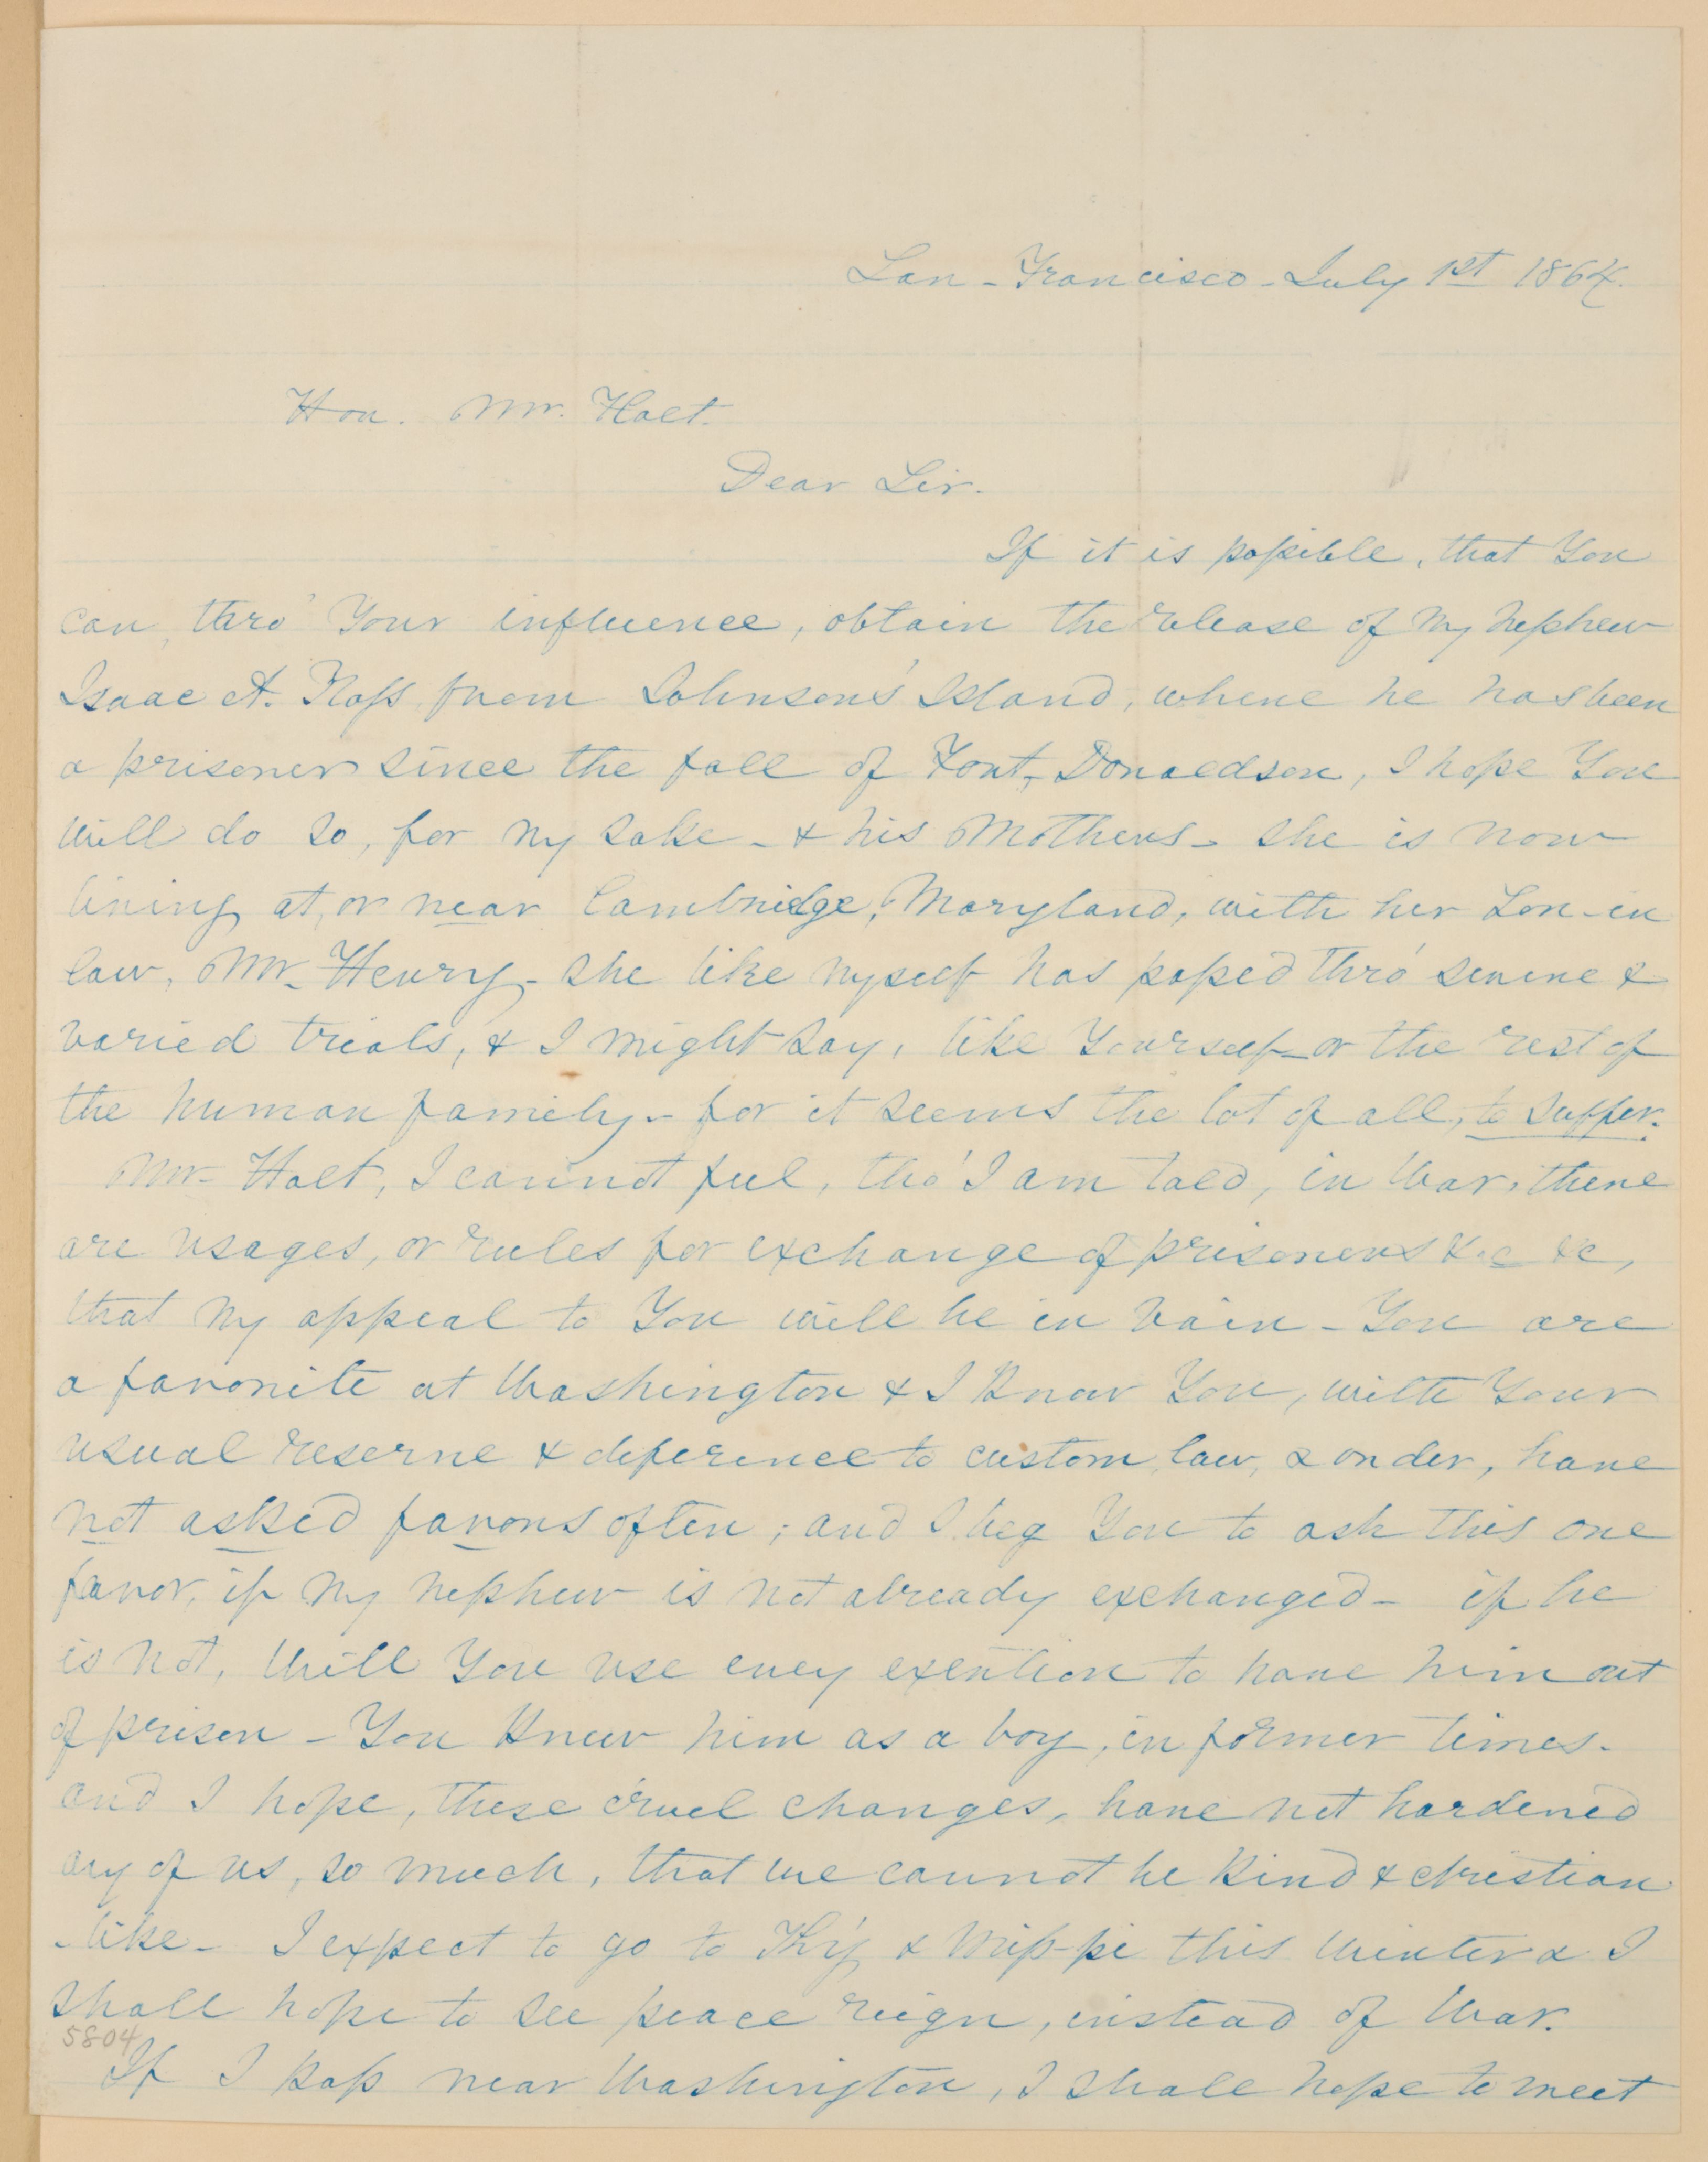 San-Francisco-July 1st 1864.
Hon. Mr. Holt.
Dear Sir.
If it is possible, that You
can, thro' Your influence, obtain the release of my nephew
Isaac A. from Johnson's Island, where he has been
a prisoner since the fall of Fort, Donaldson, I hope You
will do so, for my sake - & his Mothers - she is now
living at, or near Cambridge, Maryland, with her Son-in
law, Mr. Henry - she like myself has passed thro' severe &
varied trials, & I might say, like Yourself - or the rest of
the human family - for it seems the lot of all, to suffer.
Mr- Holt, I cannot feel, tho' I am told, in War, there
are usages, or rules for exchange of prisoners &c &c,
that my appeal to You will be in vain - You are
a favorite at Washington & I know You, with Your
usual reserve & deference to custom, law, & order, have
not asked favors often; and I beg You to ask this one
favor, if my nephew is not already exchanged - if he
is not, Will You use every exertion to have him out
of prison - You Knew him as a boy, in former times.
and I hope, these cruel changes, have not hardened
any of us, so much, that we cannot be Kind & christian
-like - I expect to go to Ky & Missppi this Winter & I
shall hope to see peace reign, instead of War.
5804
If I pass near Washington, I shall hope to meet